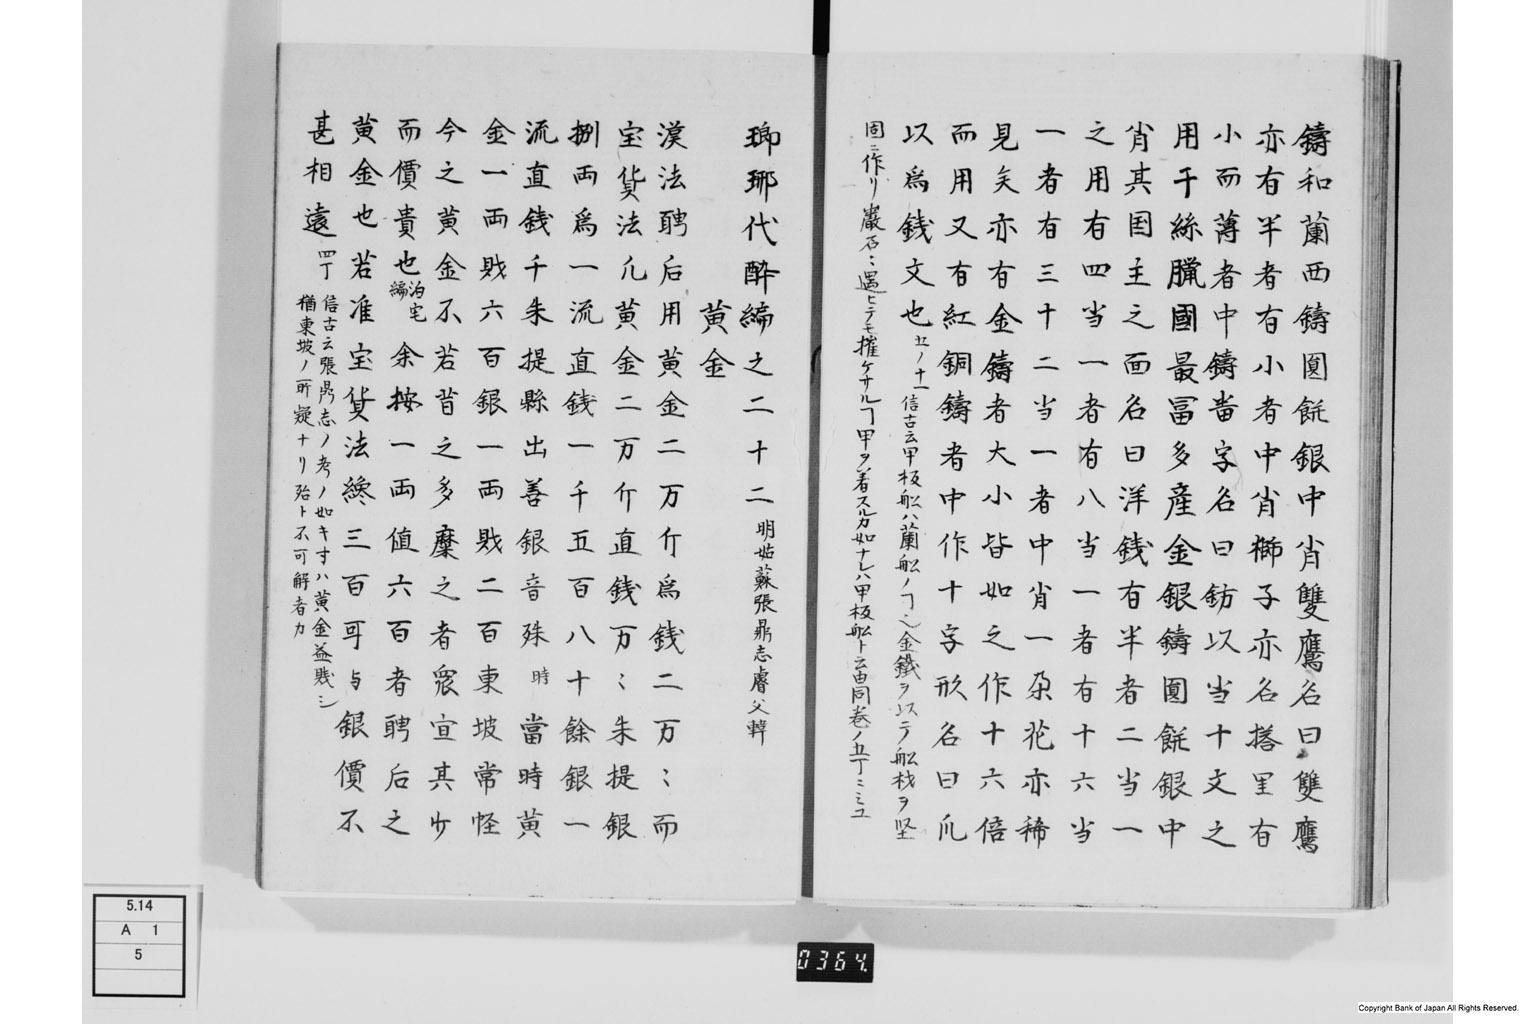 鑄和蘭西鑄圓餅銀中肖雙鷹名曰雙鷹
亦有半者有小者中肖獅子亦名搭里有
小而薄者中鑄畨字名曰鈁以当十文之
用干絲臘國最冨多産金銀鑄圓餅銀中
肖其囯主之面名曰洋銭有半者二当一
之用有四当一者有八当一者有十六当
一者有三十二当一者中肖一朶花亦稀
見矣亦有金鑄者大小皆如之作十六倍
而用又有紅銅鑄者中作十字形名曰爪
以為銭文也 五ノ十一 信古云甲板船ハ蘭船ノヿ也金鐵ヲ以テ船材ヲ堅
固ニ作リ巌石ニ遇ヒテモ摧ケサルヿ甲ヲ着スルカ如ナレハ甲板船ト云由同巻ノ五丁ニミユ
瑯琊代酔編之二十二 明姑蘇張鼎志睿父輯
黄金
漢法聘后用黄金二万斤為銭二万〻而
宝貨法凢黄金二万斤直銭万〻朱提銀
捌両為一流直銭一千五百八十餘銀一
流直銭千朱提縣出善銀音殊時 當時黄
金一両戝六百銀一両戝二百東坡常怪
今之黄金不若昔之多糜之者衆宣其少
而價貴也 泊宅編 余按一両値六百者聘后之
黄金也若准宝貨法纔三百可与銀價不
甚相遠 四丁 信古云張鼎志ノ考ノ如キ寸ハ黄金益賎シ
猶東坡ノ所疑ナリ殆ト不可解者カ
5.14
A 1
5
0364
Copyright Bank of Japan All Rights Reserved.